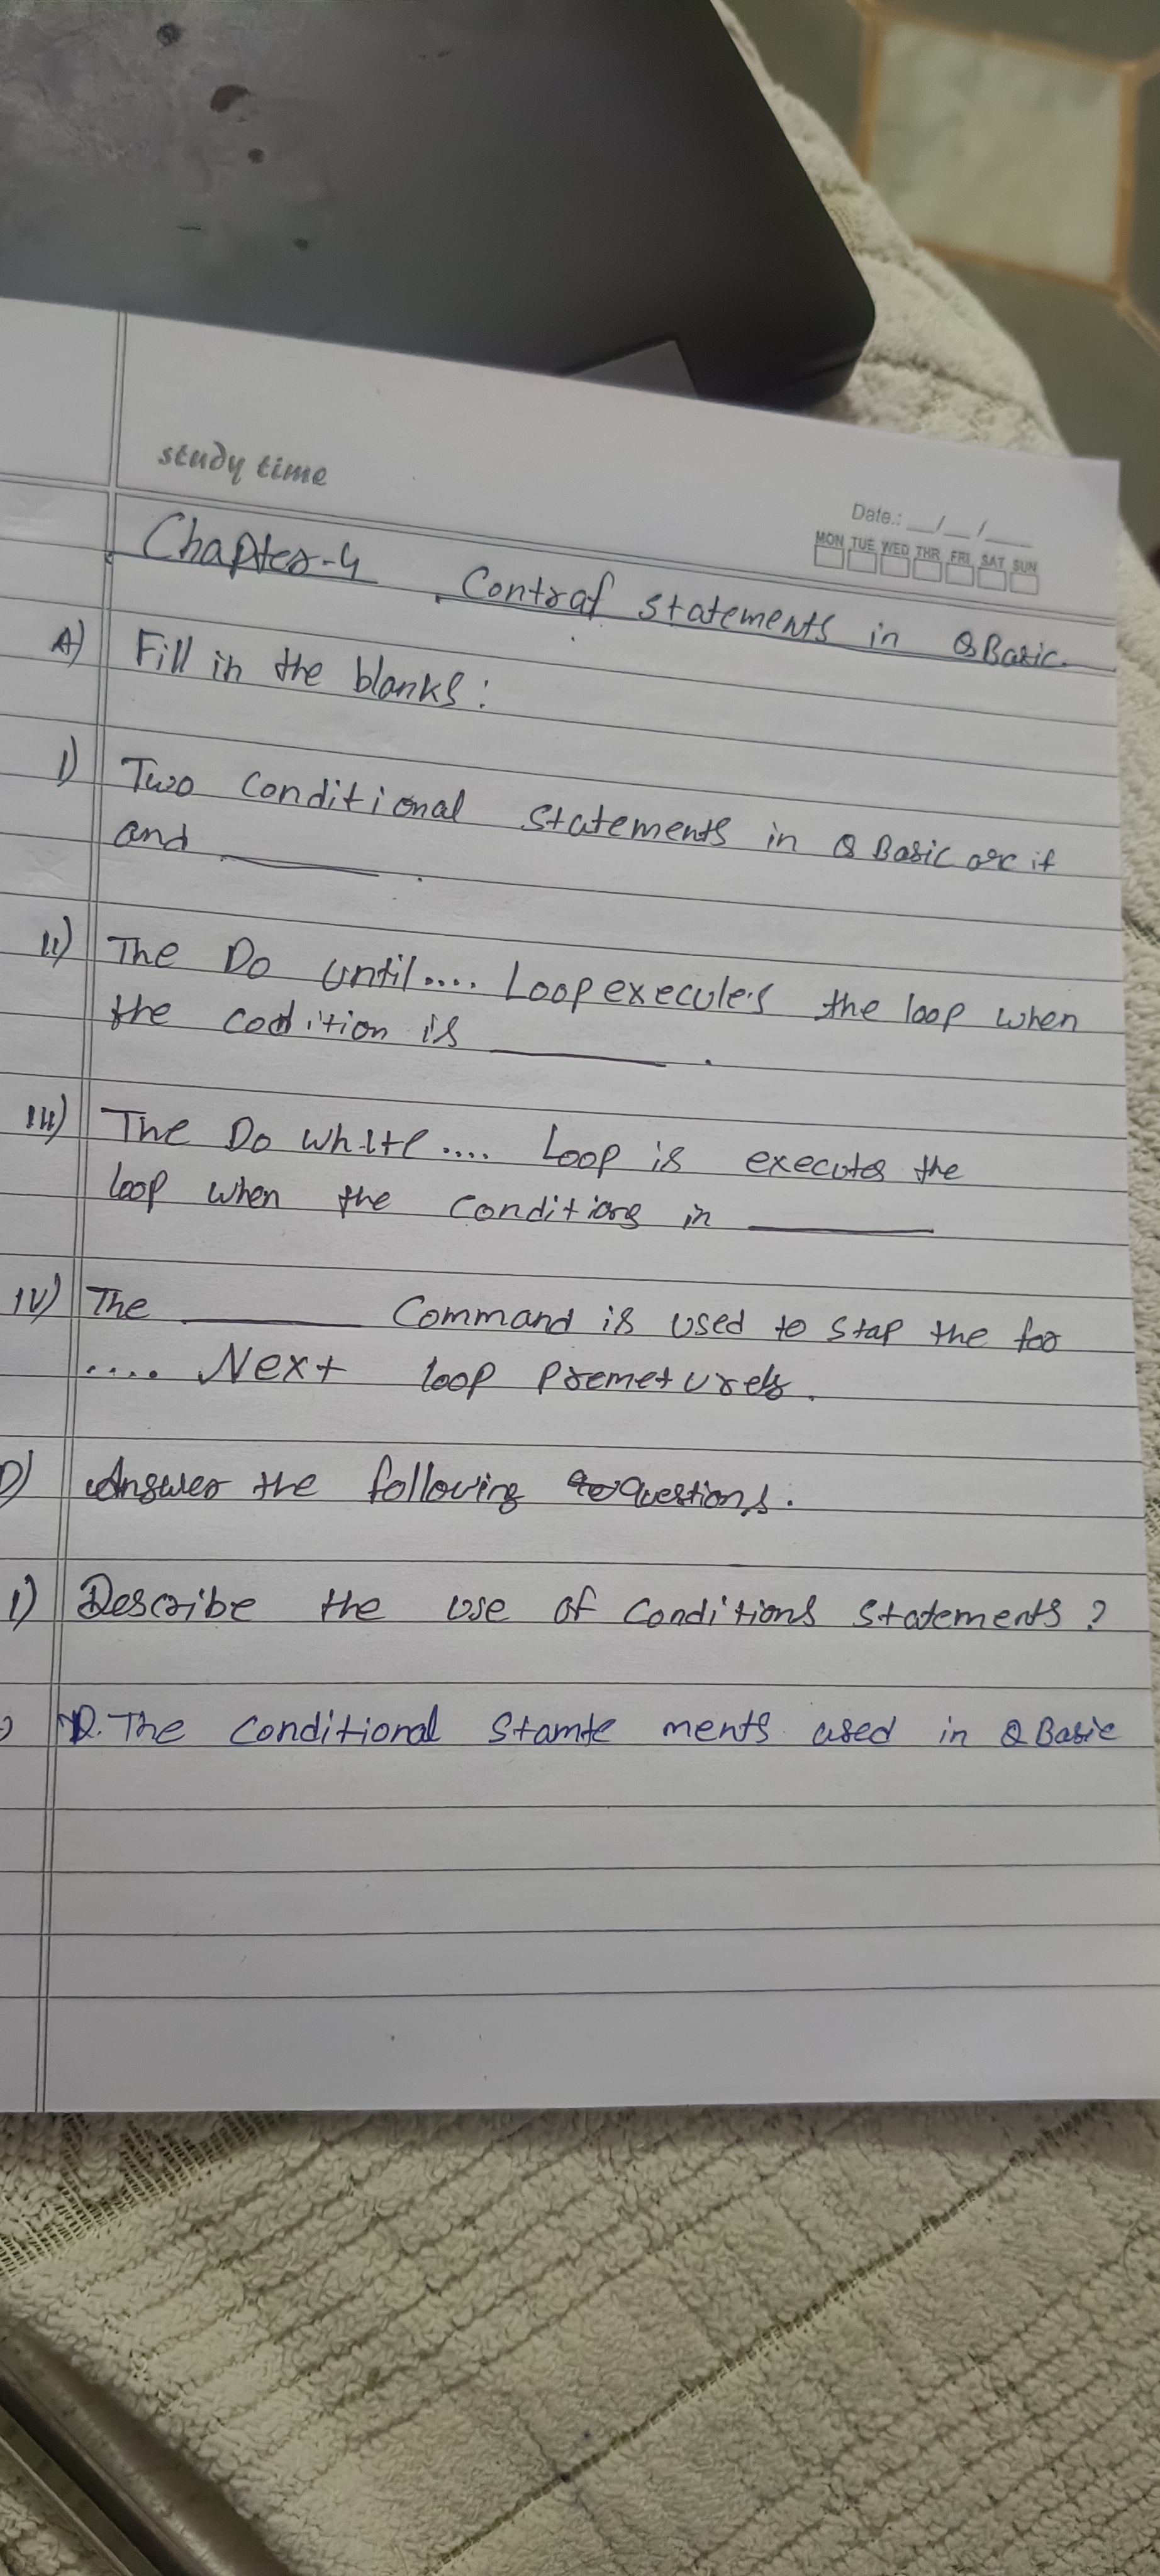 study time
Date.: __/__/__
MON TUE WED THR FRI SAT SUN
Chapter-4 Control statements in QBasic.
A) Fill in the blanks:
I) Two Conditional Statements in Q Basic are if
and ________ .
II) The Do Until.... Loop execules the loop when
the codition is ________ .
III) The Do While.... Loop is executes the
loop when the Conditions in ________
IV) The ________ Command is used to Stop the for
.... Next loop Premeturely.
D) Answer the following Questions.
1) Describe the use of Conditions Statements?
The Conditional Stamte ments used in Q Basic